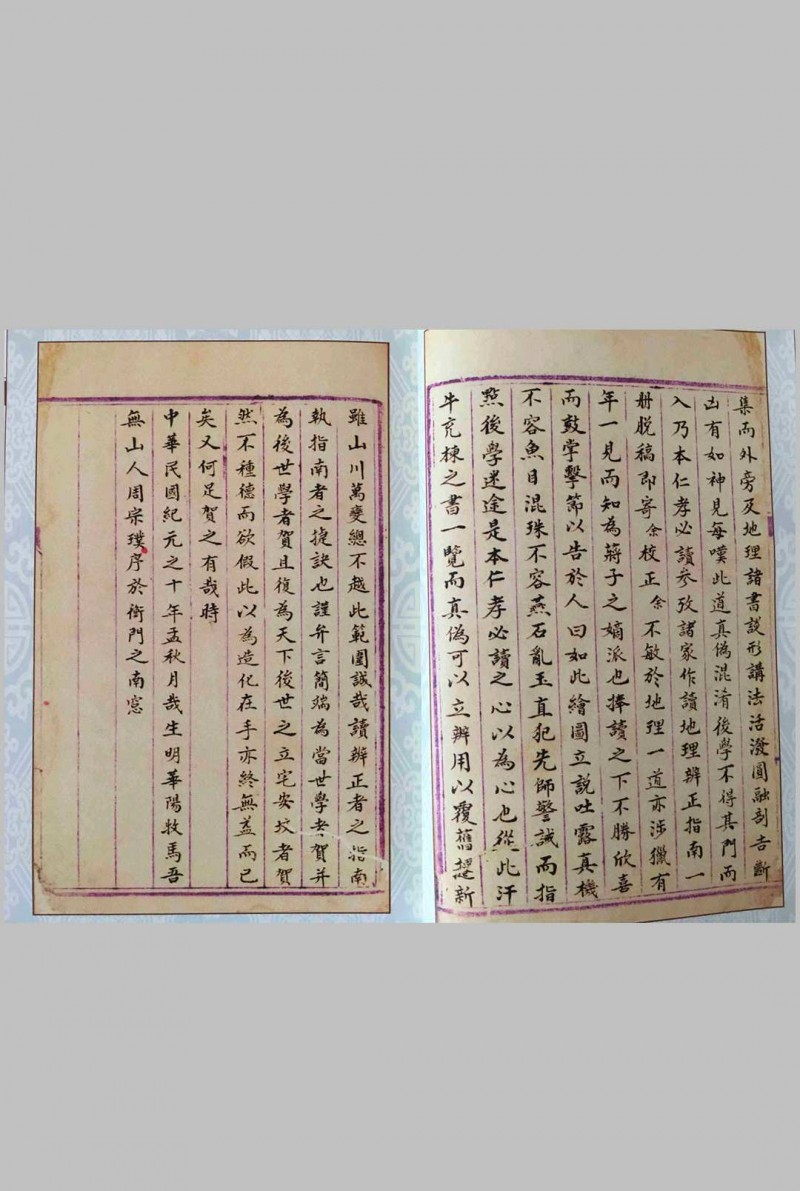 集而外旁及地理諸書談形講法活潑圓融剖吉斷
凶有如神見每嘆此道真偽混淆後學不得其門而
入乃本仁孝必讀參攷諸家作讀地理辨正指南一
册脱稿即寄余校正余不敏於地理一道亦涉獵有
年一見而知為蔣子之嫡派也捧讀之下不勝欣喜
而鼓掌擊節以告於人曰如此繪圖立說吐露真機
不容魚目混珠不容燕石亂玉直犯先師警誡而指
點後學迷途是本仁孝必讀之心以為心也從此汗
牛充棟之書一覽而真偽可以立辨用以覆舊墳新
雖山川萬變總不越此範圍誠哉讀辨正者之指南
執指南者之捷訣也謹弁言簡端為當世學者賀并
為後世學者賀且復為天下後世之立宅安坟者賀
然不種德而欲假此以為造化在手亦終無益而已
矣又何足賀之有哉時
中華民國紀元之十年孟秋月哉生明華陽牧馬吾
無山人周宗璞序於衡門之南窓